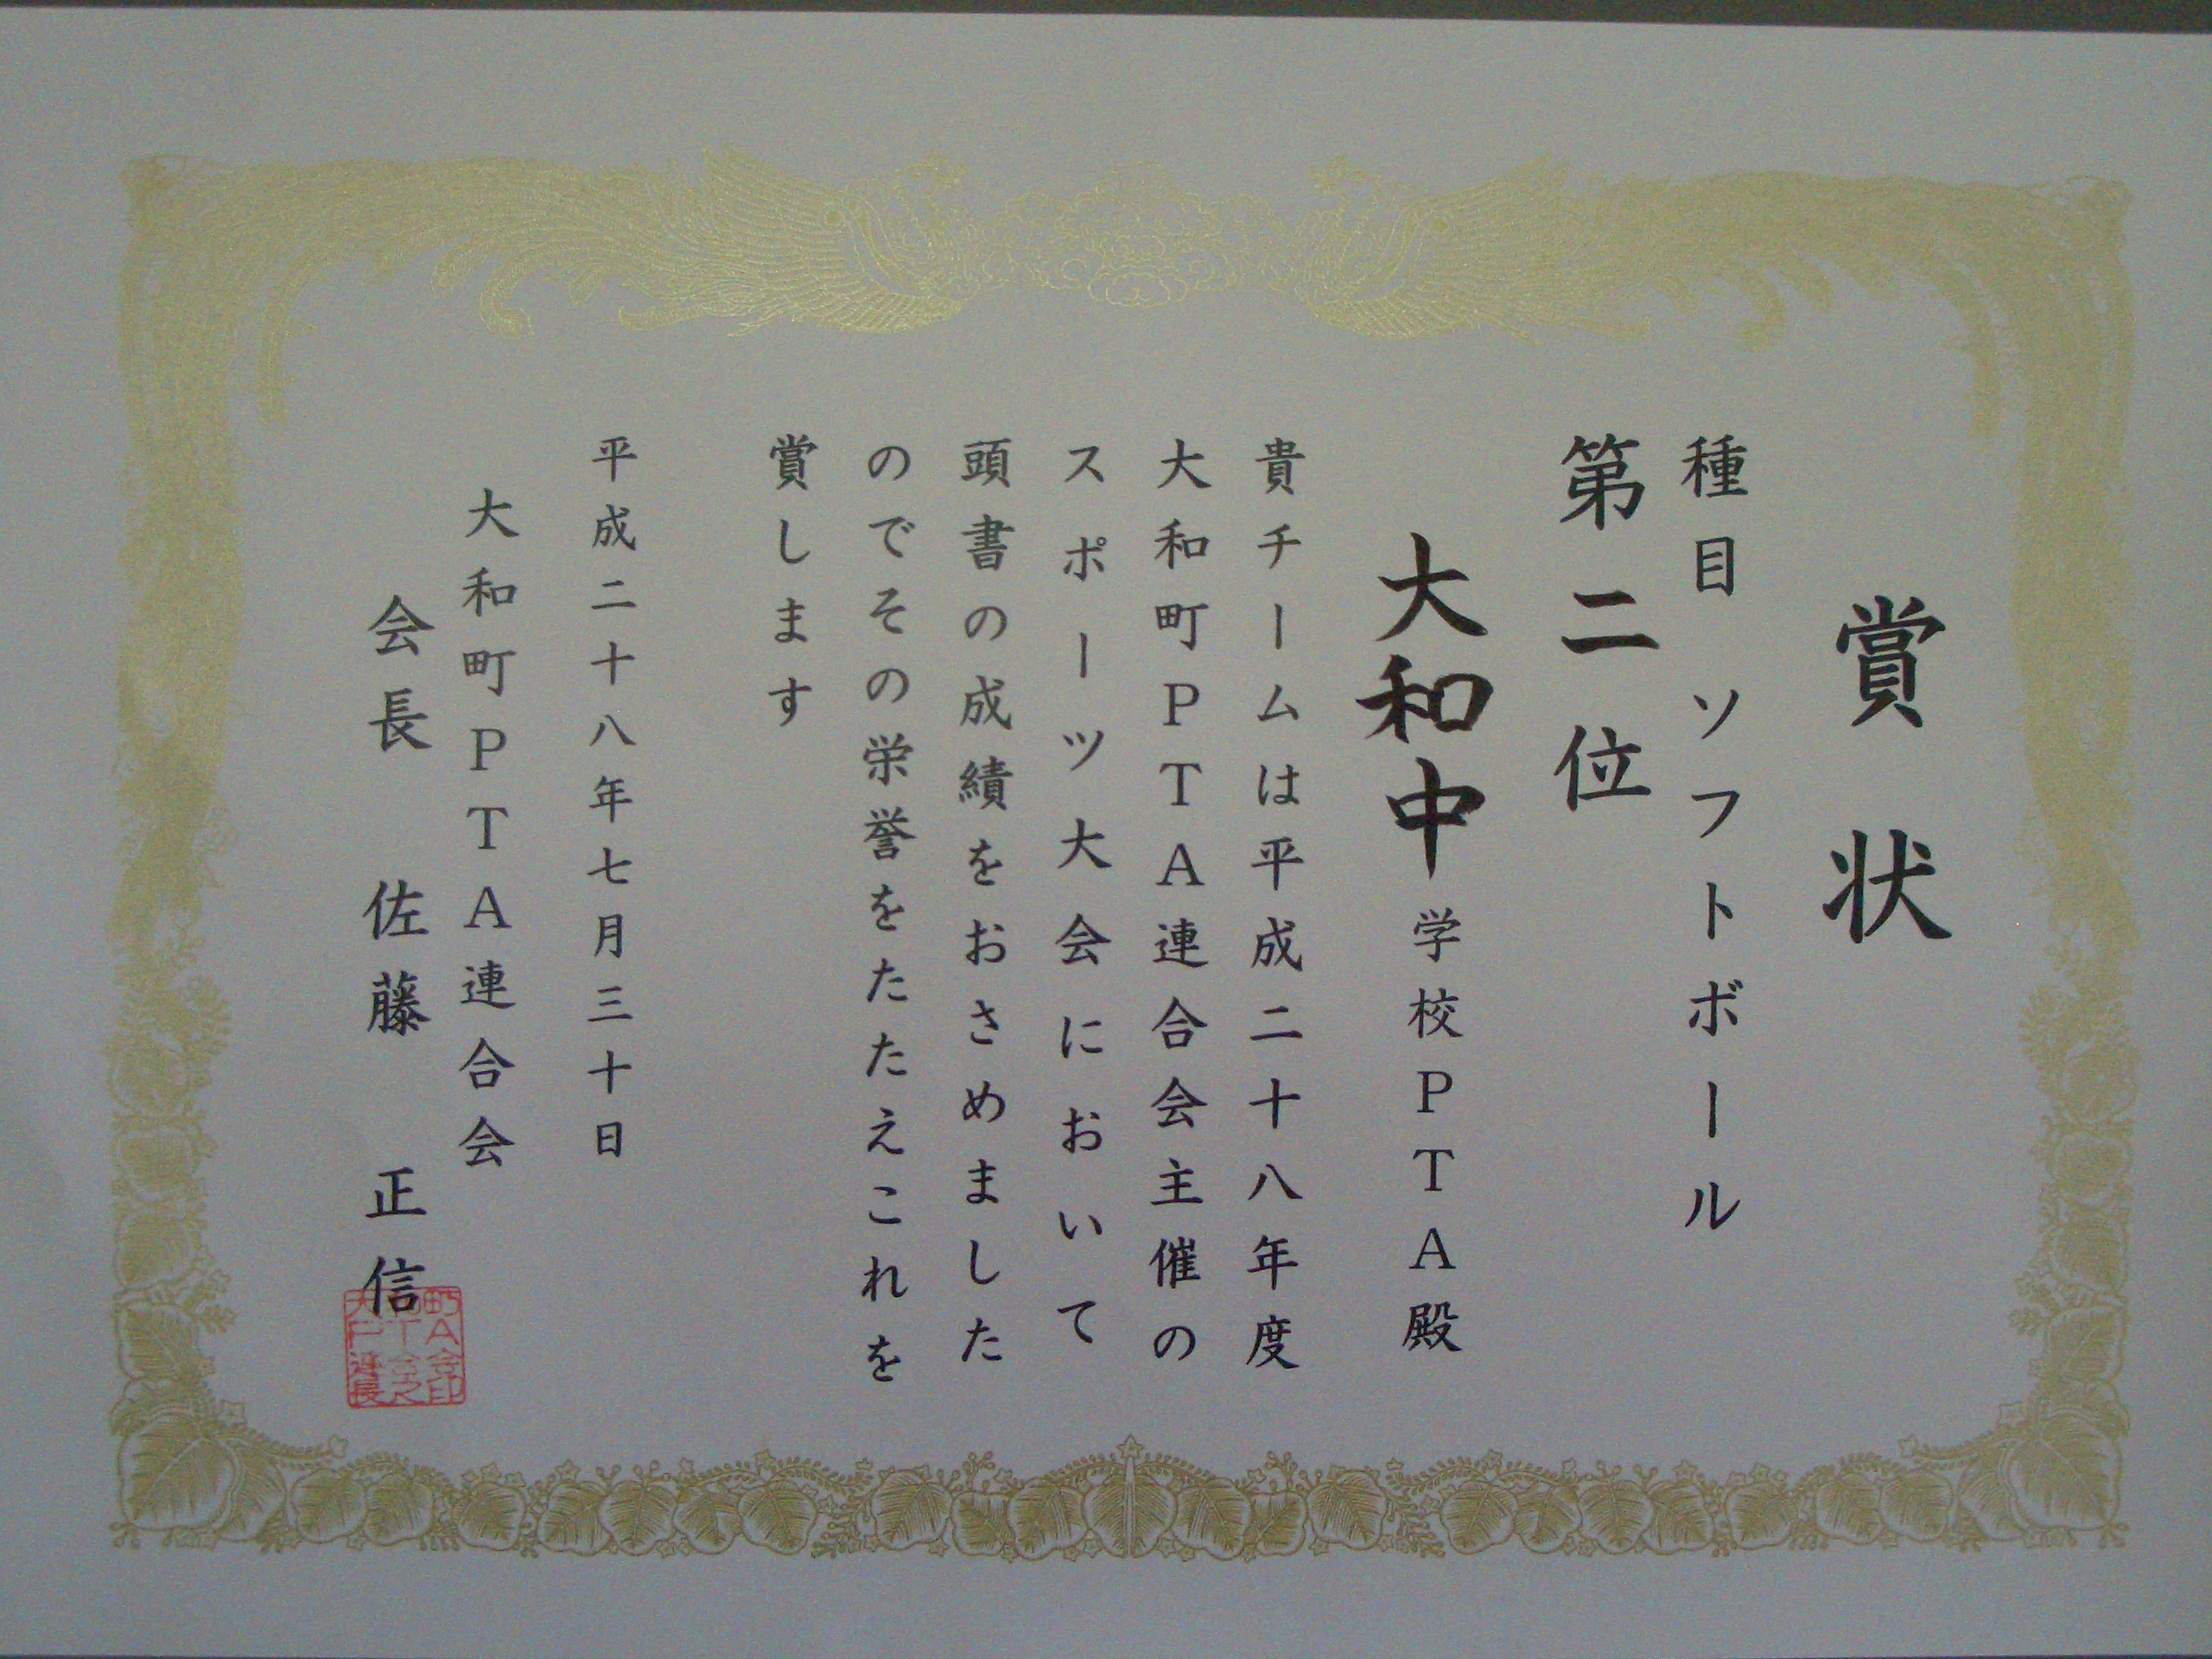 賞状
種目 ソフトボール
第二位
大和中学校PTA殿
貴チームは平成二十八年度
大和町PTA連合会主催の
スポーツ大会において
頭書の成績をおさめました
のでその栄誉をたたえこれを
賞します
平成二十八年七月三十日
大和町PTA連合会
会長 佐藤 正信